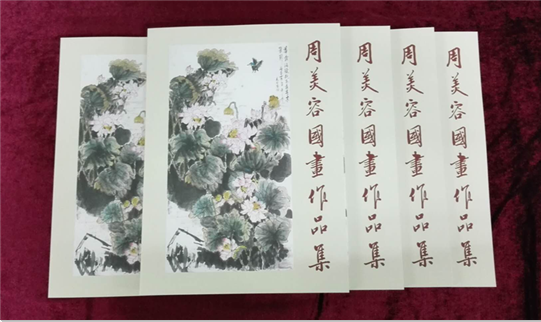 周美容國畫作品集
周美容國畫作品集
周美容國畫作品集
周美容國畫作品集